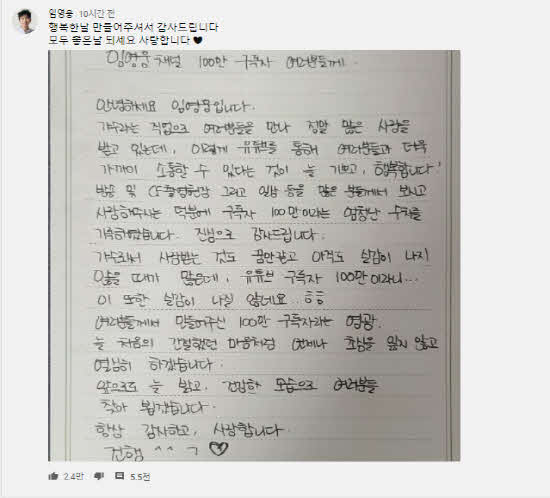 임영웅 10시간 전
행복한날 만들어주셔서 감사드립니다
모두 좋은날 되세요 사랑합니다 ♥
임영웅 채널 100만 구독자 여러분들께.
안녕하세요 임영웅입니다.
가수라는 직업으로 여러분들을 만나 정말 많은 사랑을
받고 있는데, 이렇게 유튜브를 통해 여러분들과 더욱
가까이 소통할 수 있다는 것이 늘 기쁘고, 행복합니다!
방송 및 CF촬영현장 그리고 일상 등을 많은 분들께서 보시고
사랑해주시는 덕분에 구독자 100만이라는 엄청난 수치를
기록하였습니다. 진심으로 감사드립니다.
가수로서 사랑받는 것도 꿈만같고 아직도 실감이 나지
않을 때가 많은데, 유튜브 구독자 100만이라니...
이 또한 실감이 나질 않네요..ㅎㅎ
여러분들께서 만들어주신 100만 구독자라는 영광.
늘 처음의 간절했던 마음처럼 언제나 초심을 잃지 않고
열심히 하겠습니다.
앞으로도 늘 밝고, 건강한 모습으로 여러분들
찾아 뵙겠습니다.
항상 감사하고, 사랑합니다.
건행 ^^ ㄱ ♡
2.4만 5.5천